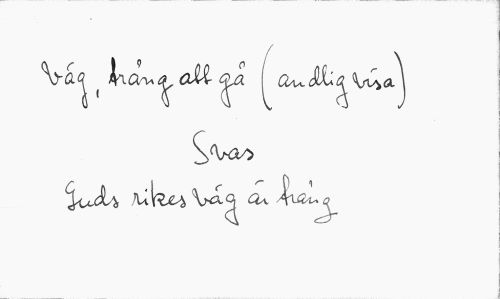 Väg, trång att gå (andlig visa)
Svas
Guds rikes väg är trång